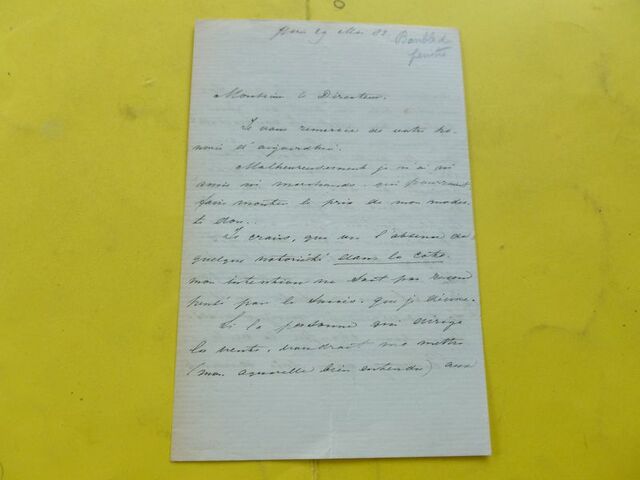 Paris 29 Mai 83
peintre
Monsieur le Directeur.
Je vous remercie de votre
d'aujourdhui.
Malheureusement je n'ai ni
amis ni marchands, qui pourraient
faire monter le prix de mon modes-
te don.
Je crains, que vu l'absence de
quelque notoriété dans la cote
mon intention ne soit pas
par le Succès, que je désire.
Si la personne qui dirige
la vente, voudrait me mettre
(mon aquarelle bien entendu) aux